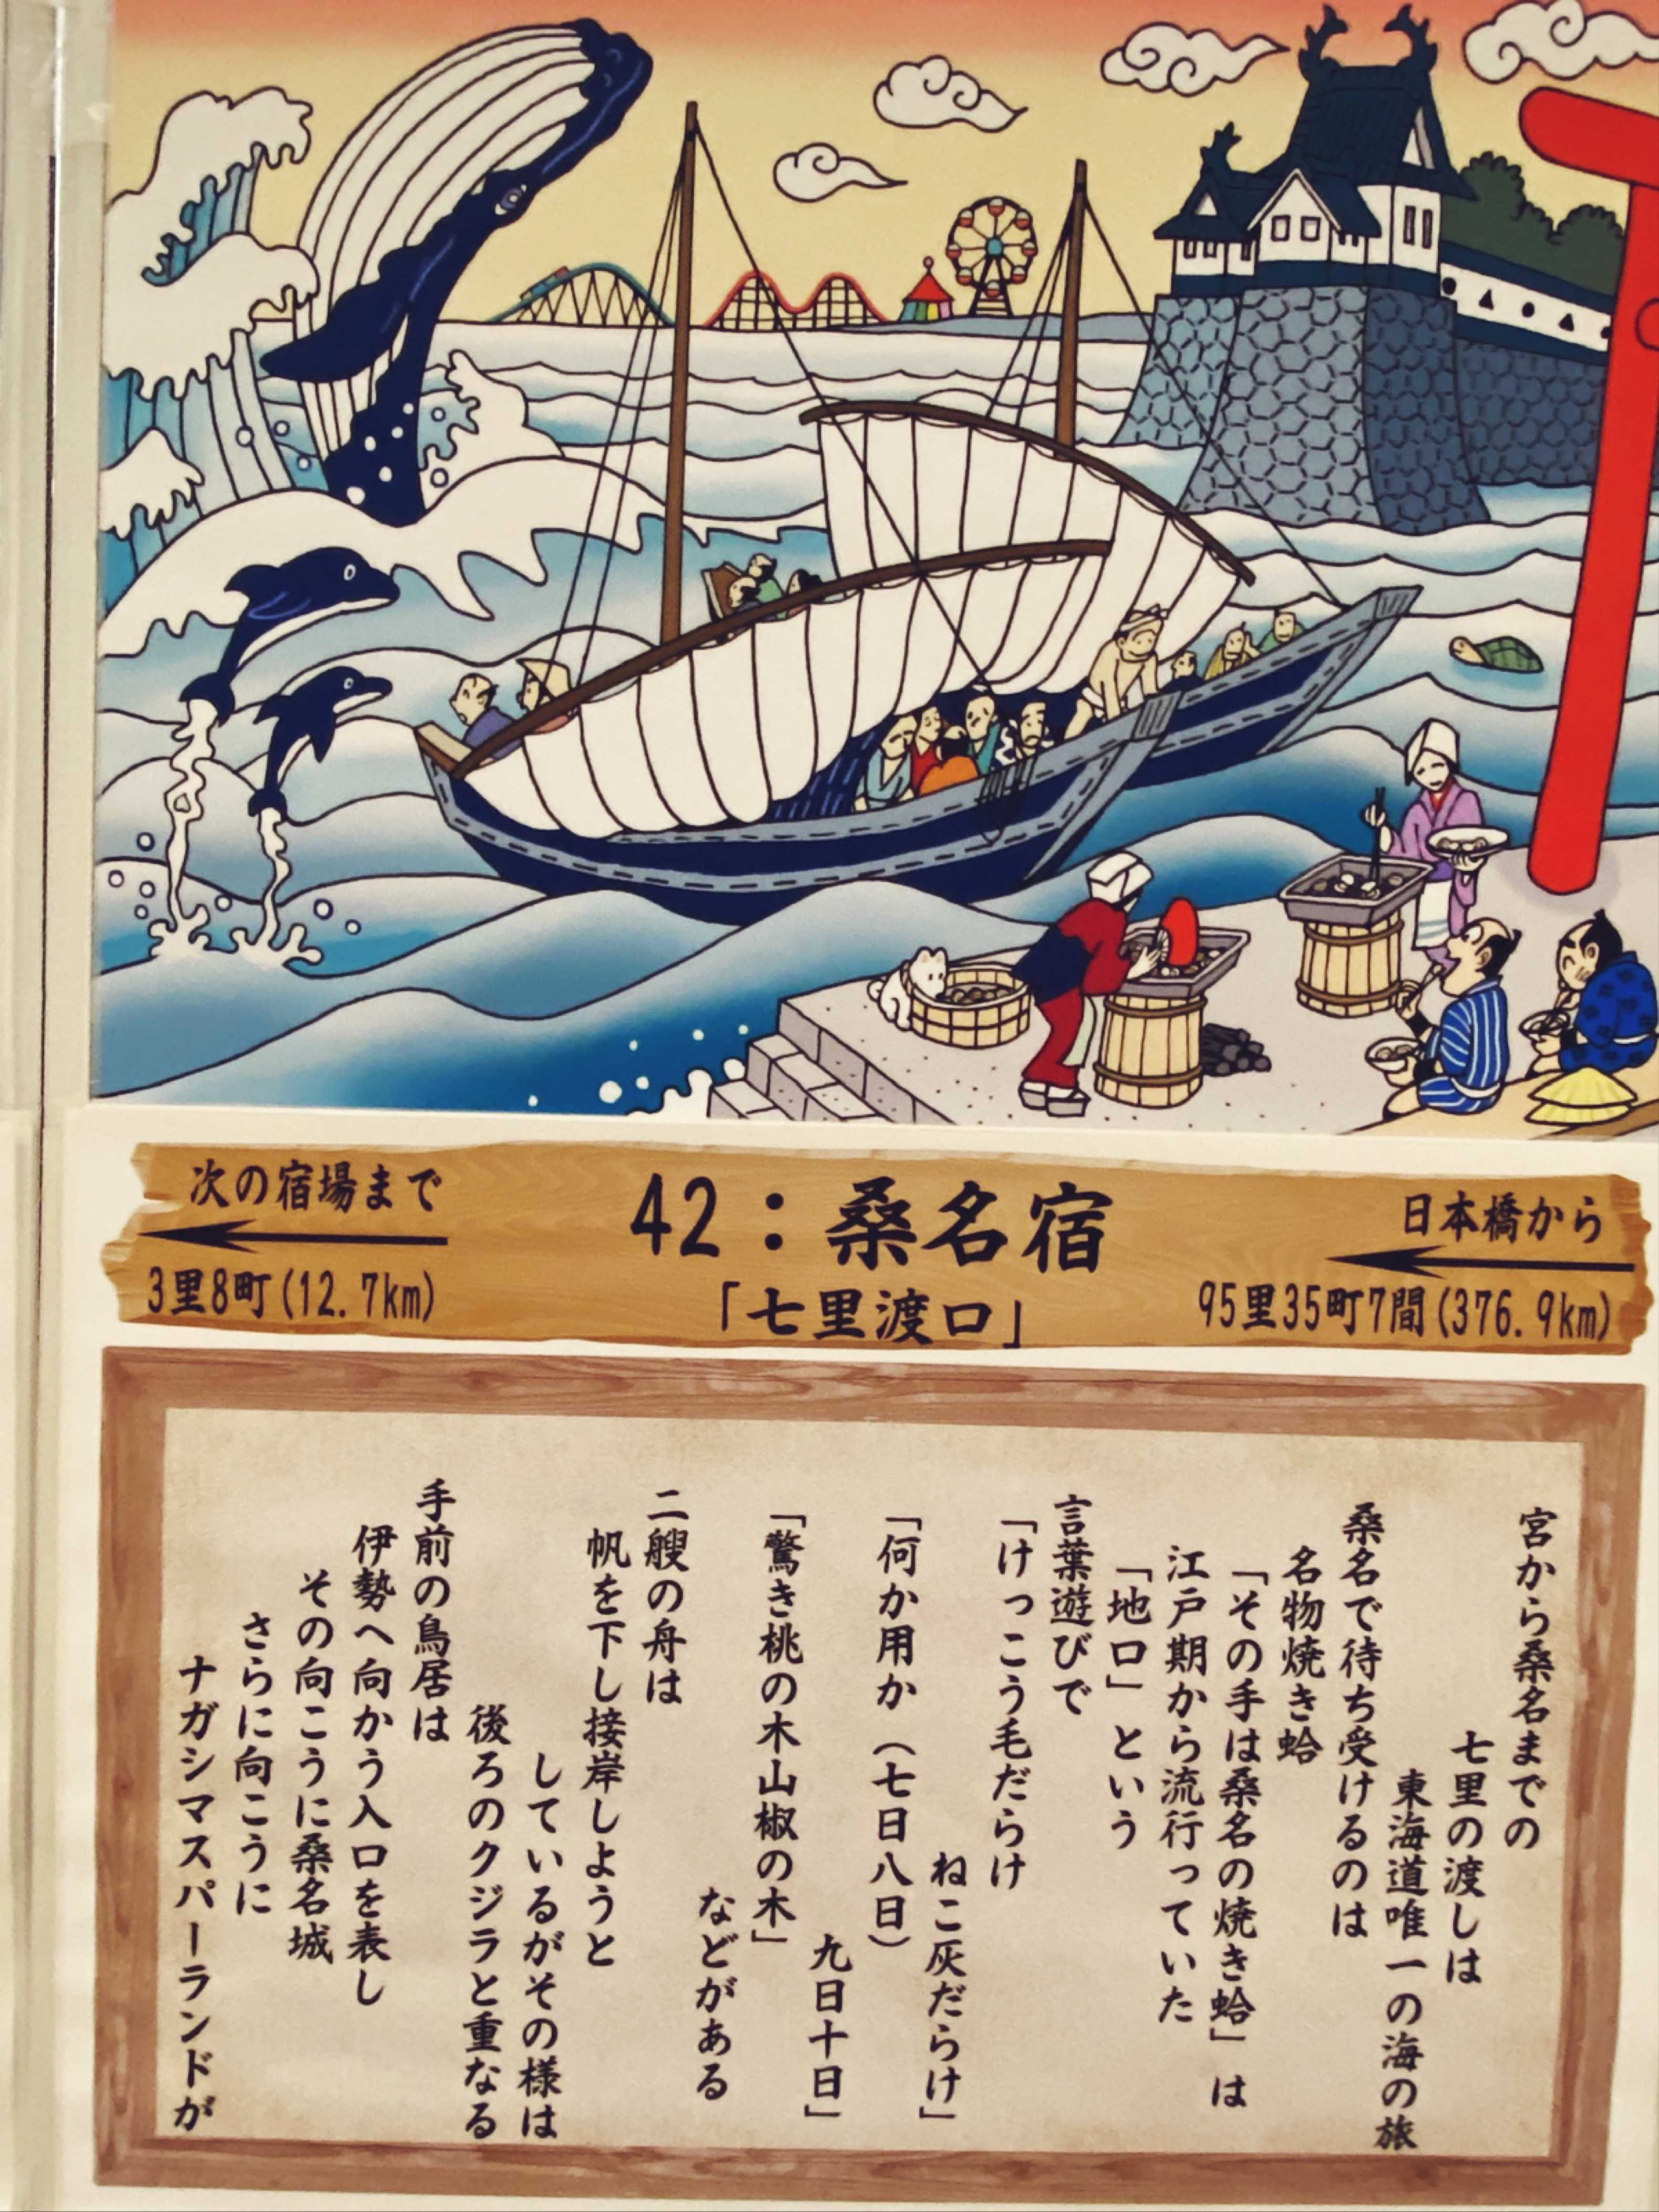 次の宿場まで
3里8町(12.7km)
42：桑名宿
「七里渡口」
日本橋から
95里35町7間(376.9km)
宮から桑名までの
七里の渡しは
東海道唯一の海の旅
桑名で待ち受けるのは
名物焼き蛤
「その手は桑名の焼き蛤」は
江戸期から流行っていた
「地口」という
言葉遊びで
「けっこう毛だらけ
ねこ灰だらけ」
「何か用か（七日八日）
九日十日」
「驚き桃の木山椒の木」
などがある
二艘の舟は
帆を下し接岸しようと
しているがその様は
後ろのクジラと重なる
手前の鳥居は
伊勢へ向かう入口を表し
その向こうに桑名城
さらに向こうに
ナガシマスパーランドが